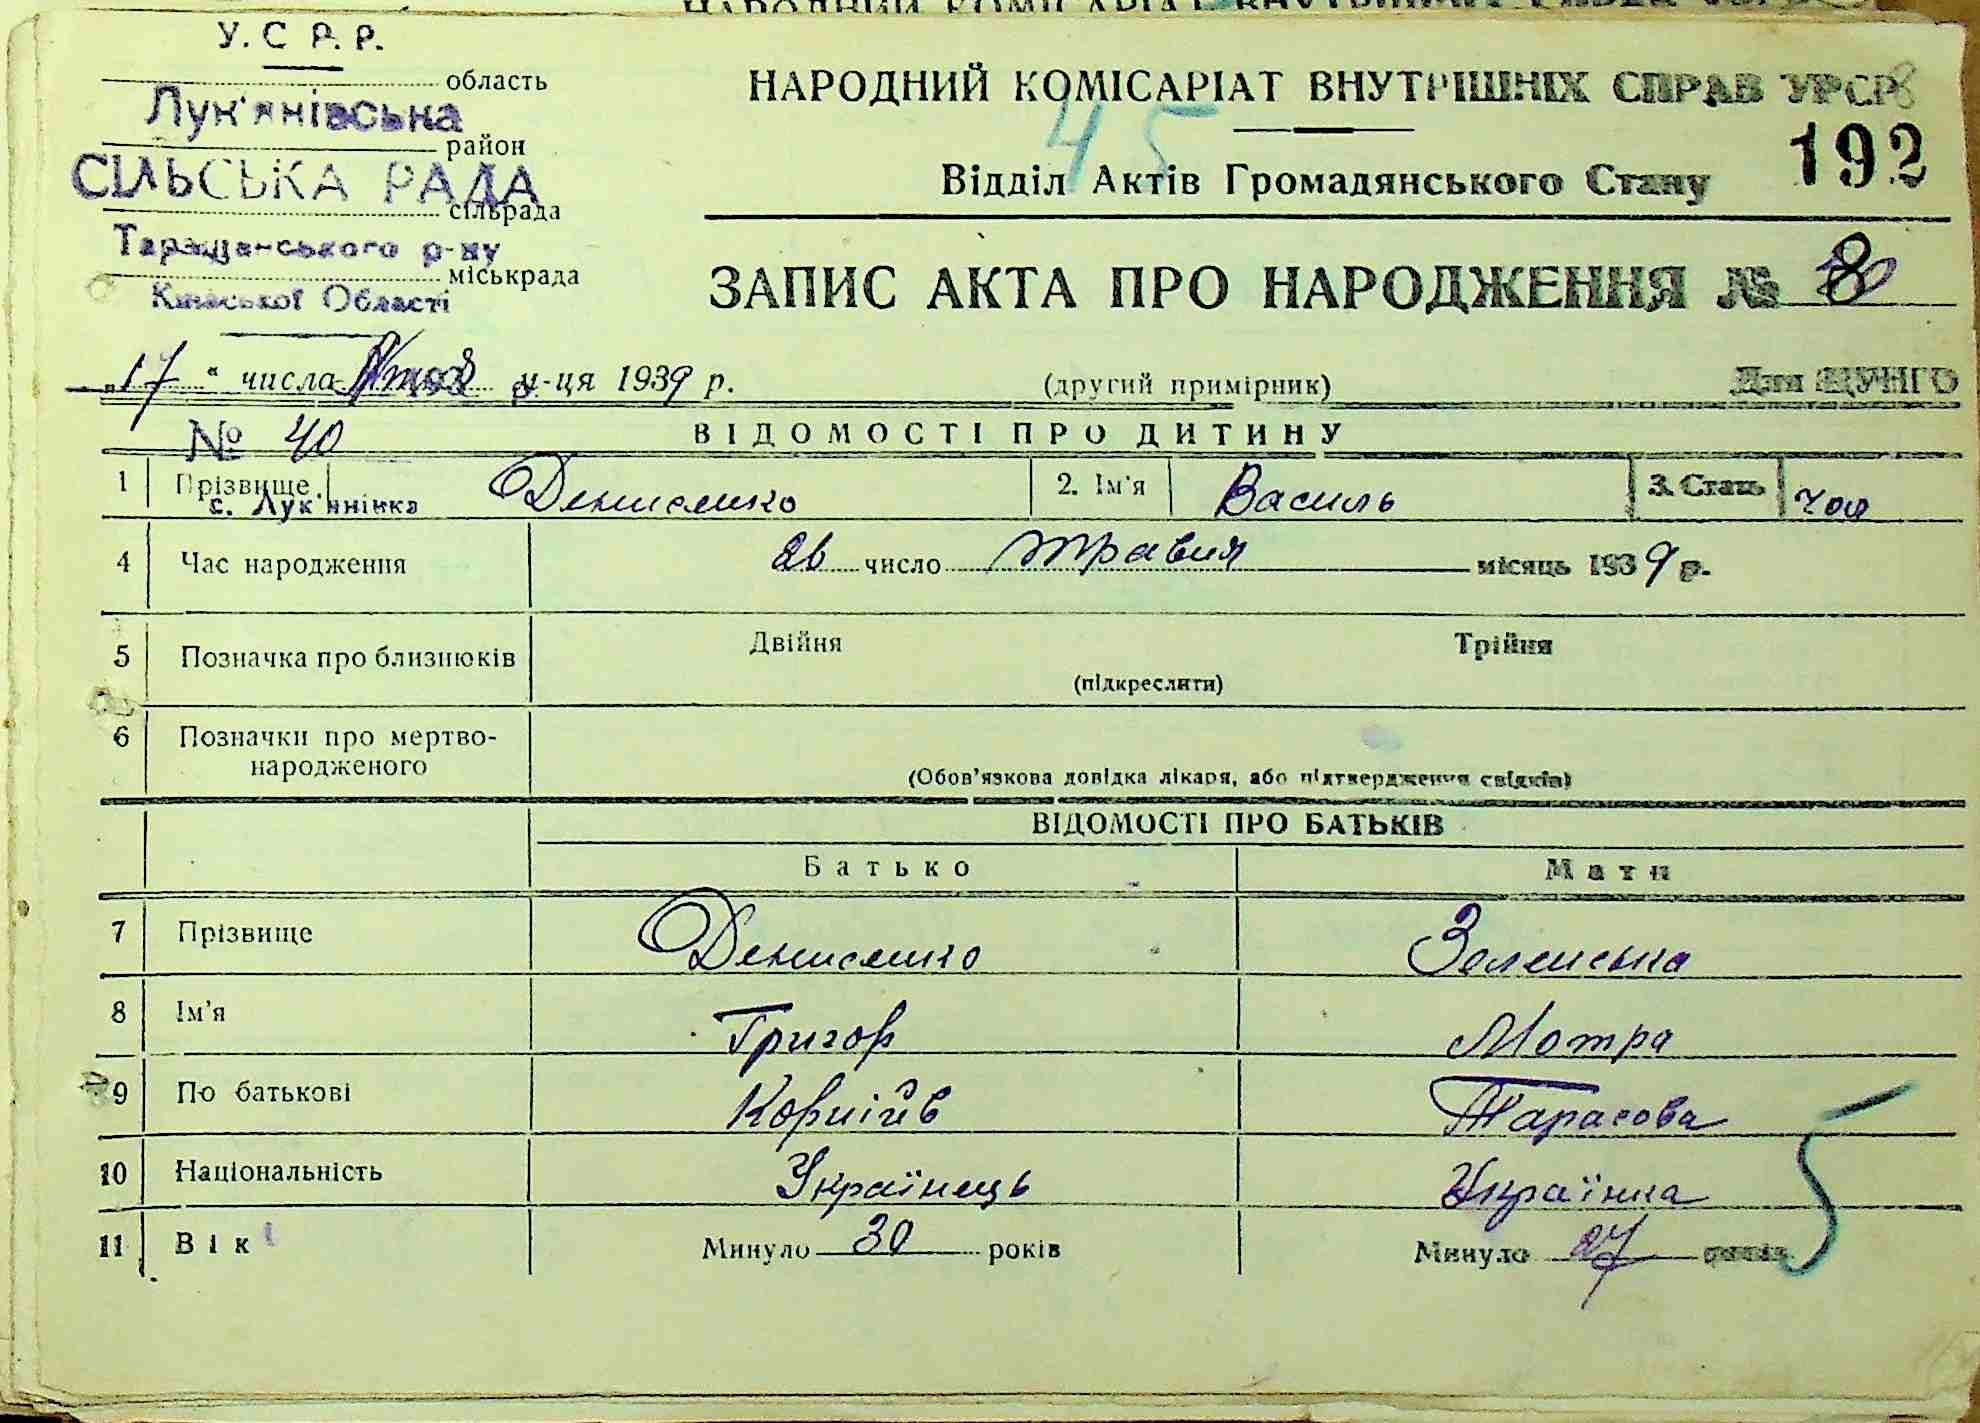 У.С Р. Р.
область
Лук'янівська
район
СІЛЬСЬКА РАДА
сільрада
Таращанського р-ну
міськрада
Київської Області
НАРОДНИЙ КОМІСАРІАТ ВНУТРІШНІХ СПРАВ УРСР
45
192
Відділ Актів Громадянського Стану
ЗАПИС АКТА ПРО НАРОДЖЕННЯ № 8
„17“ числа м-ця 1939 р.
(другий примірник)
Для ЦУНГО
№ 40
ВІДОМОСТІ ПРО ДИТИНУ
1 Прізвище Денисенко 2. Ім'я Василь 3. Стать чол
с. Лук'янівка
4 Час народження 26 число травня місяць 1939 р.
5 Позначка про близнюків Двійня Трійня
(підкреслити)
6 Позначки про мертво-
народженого
(Обов'язкова довідка лікаря, або підтвердження свідків)
ВІДОМОСТІ ПРО БАТЬКІВ
Батько Мати
7 Прізвище Денисенко Зеленська
8 Ім'я Григор Мотра
9 По батькові Корніїв Тарасова
10 Національність Українець Українка
5
11 Вік Минуло 30 років Минуло 27 років